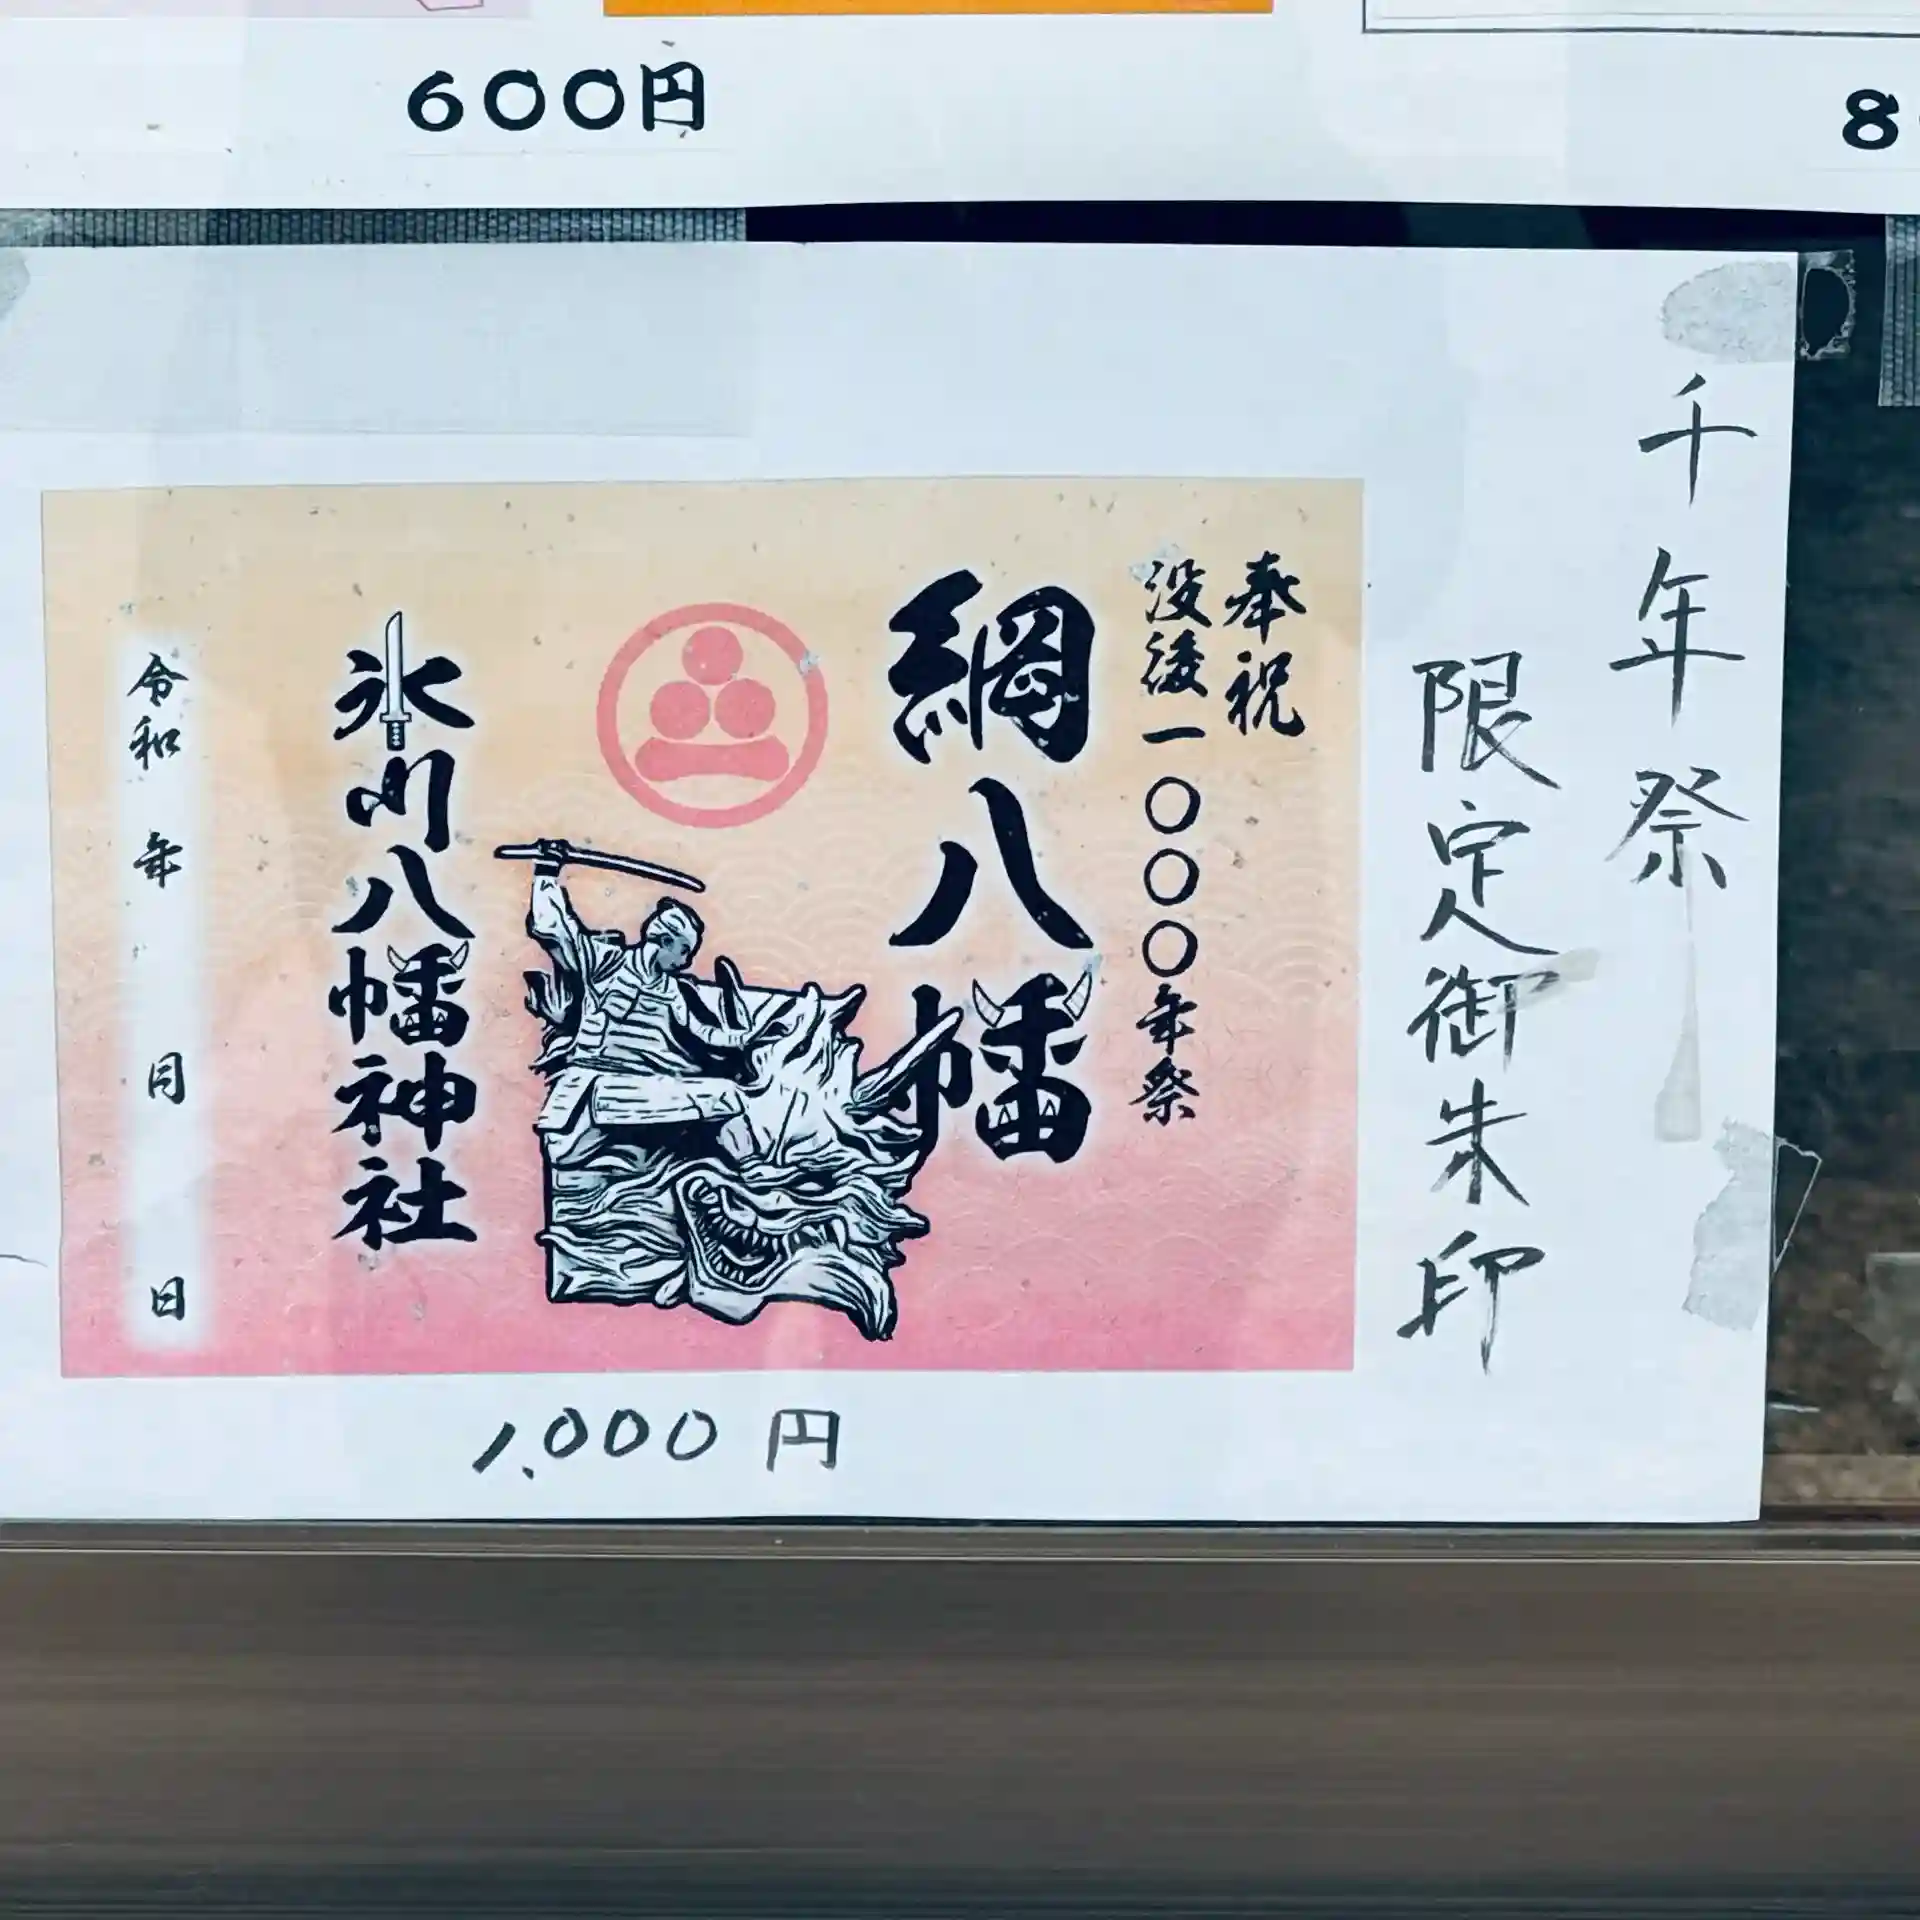 600円
8
千年祭
限定御朱印
奉祝
没後一〇〇〇年祭
綱八幡
氷川八幡神社
令和 年 月 日
1,000円